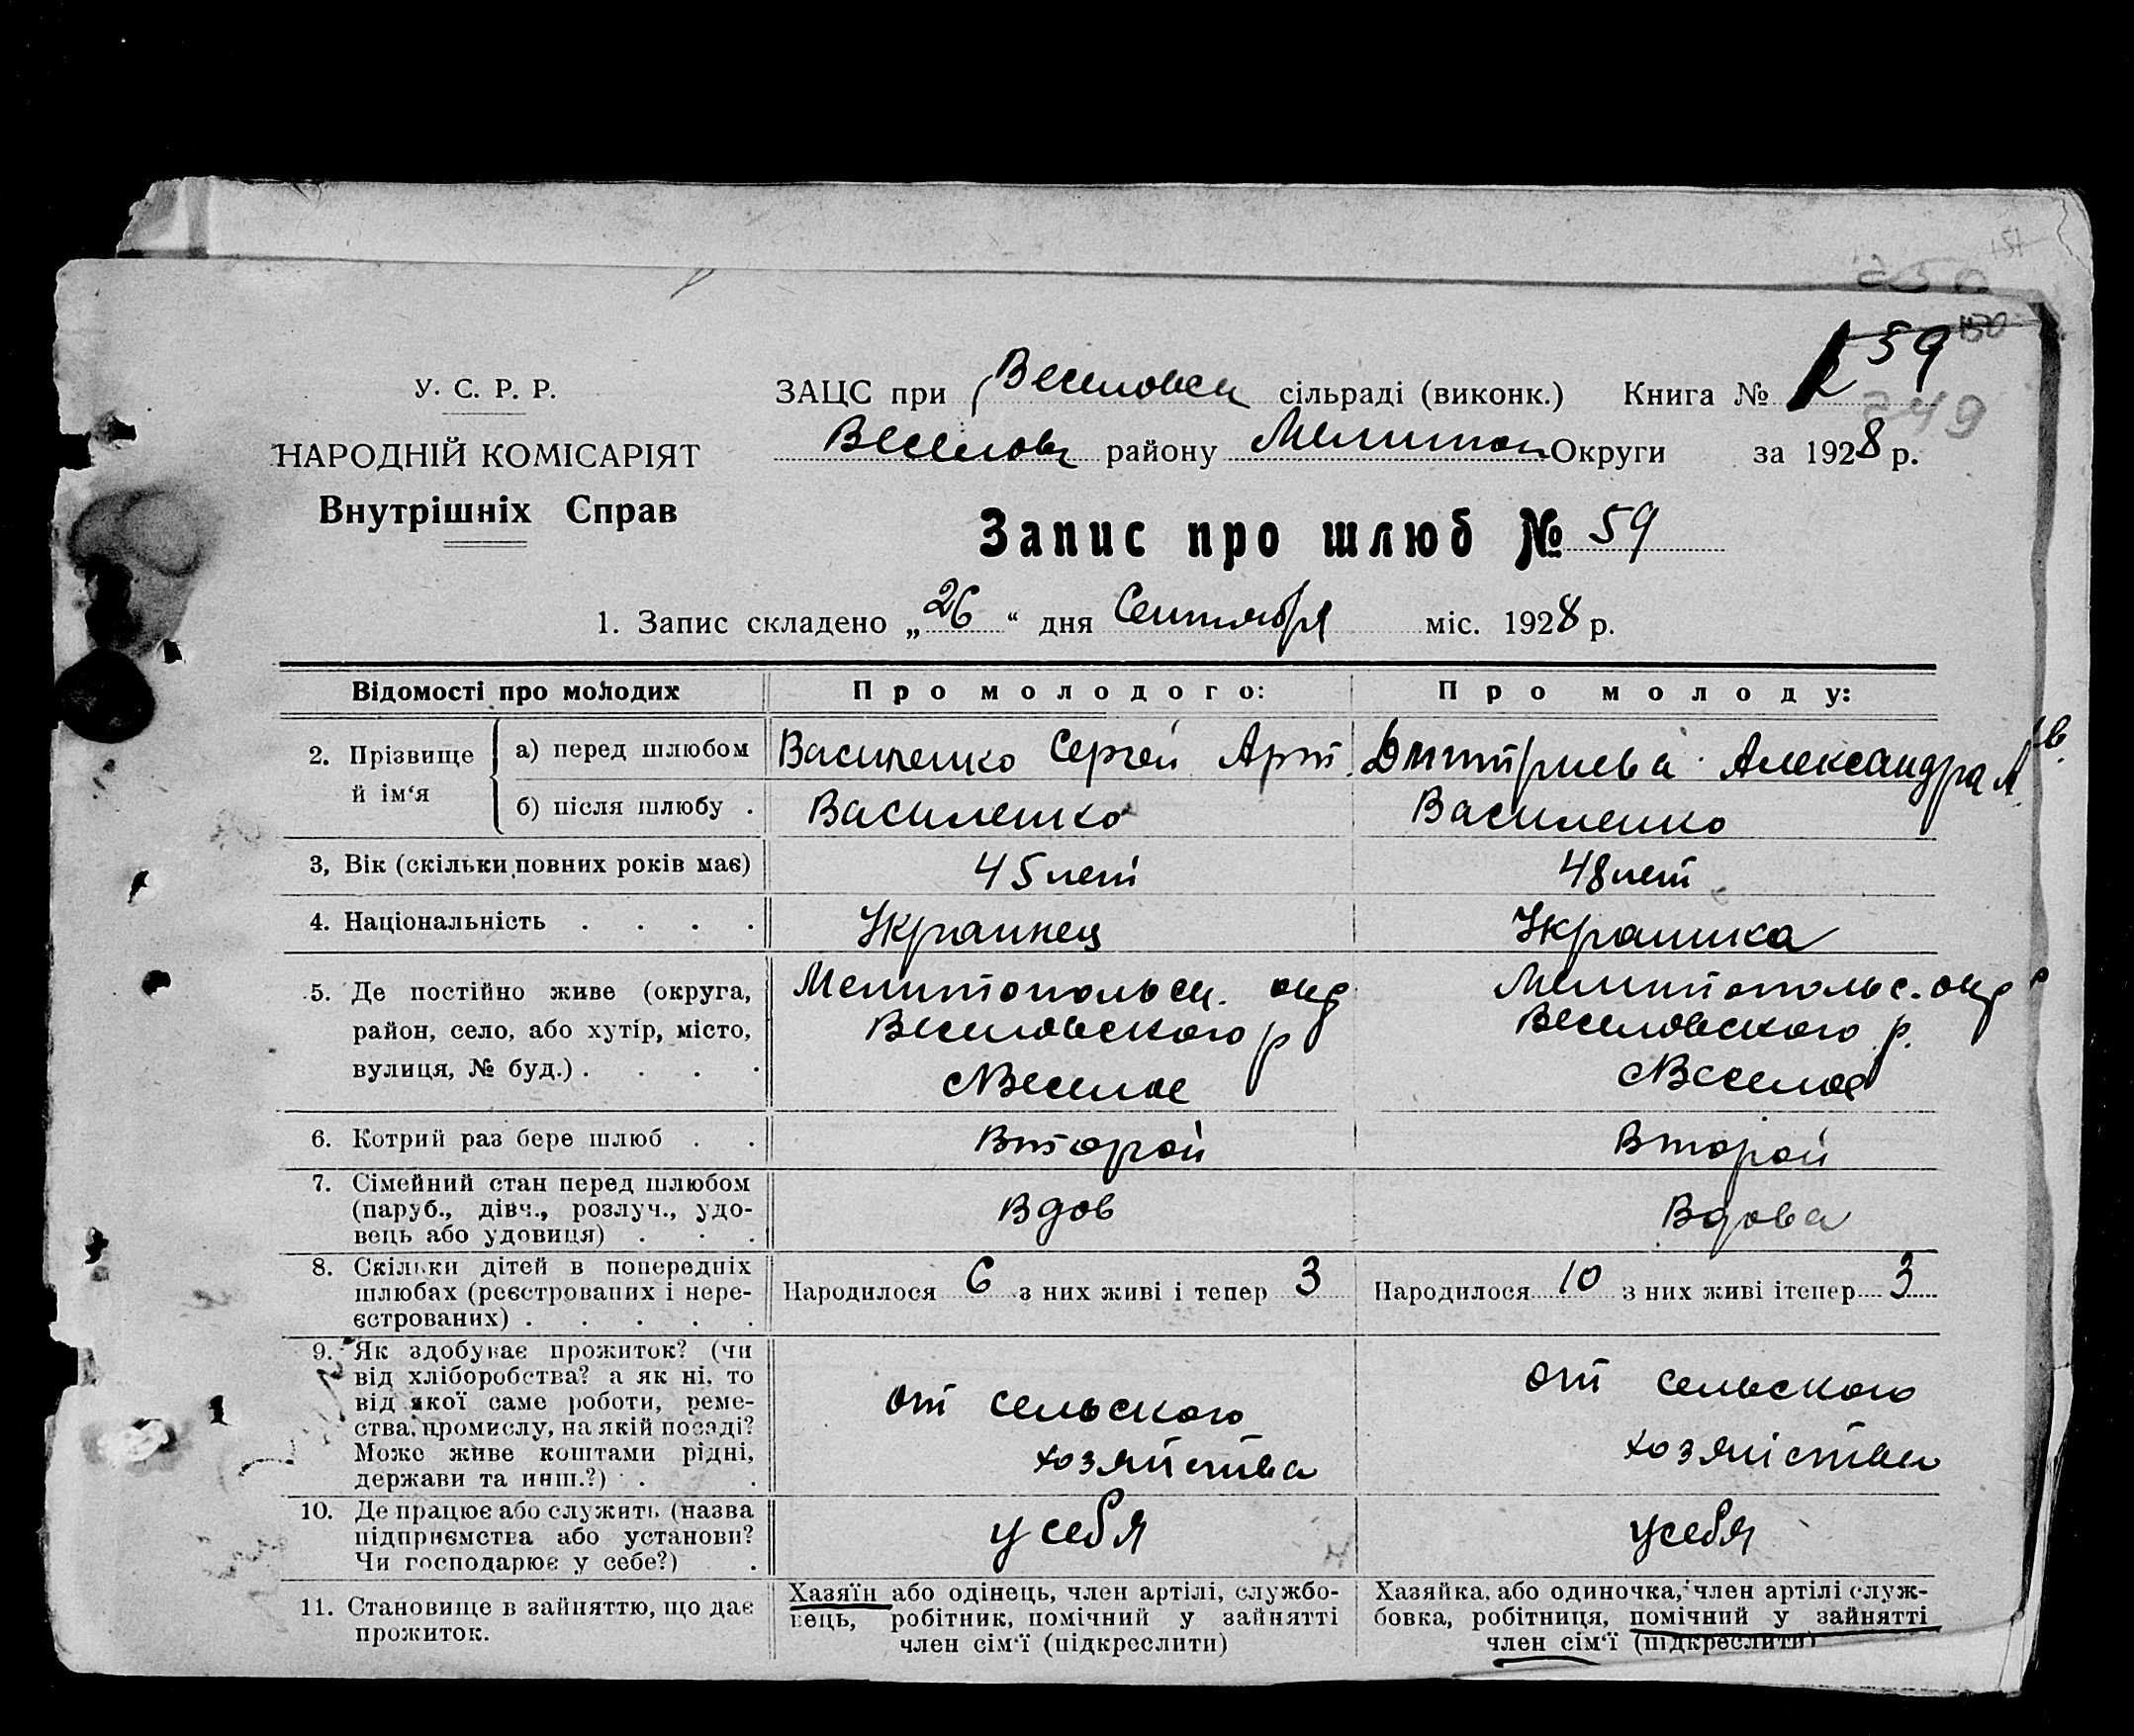 250
151
59
150
249
У. С. Р. Р.
НАРОДНІЙ КОМІСАРІЯТ
Внутрішніх Справ
ЗАЦС при Веселовск сільраді (виконк.) Книга №
Веселовск району Мелитоп Округи за 1928 р.
Запис про шлюб № 59
1. Запис складено „26“ дня Сентября міс. 1928 р.
Відомості про молодих Про молодого: Про молоду:
2. Прізвище й ім‘я
а) перед шлюбом Василенко Сергей Арт. Дмитриева Александра
б) після шлюбу . Василенко Василенко
3, Вік (скільки повних років має) 45 лет 48 лет
4. Національність . . . . Украинец Украинка
5. Де постійно живе (округа, Мелитопольск. окр Мелитопольс. окр
район, село, або хутір, місто, Веселовского р Веселовского р.
вулиця, № буд.) . . . . с Веселое с Веселое
6. Котрий раз бере шлюб . . Второй Второй
7. Сімейний стан перед шлюбом
(паруб., дівч., розлуч., удо-
вець або удовиця) . . . Вдов Вдова
8. Скільки дітей в попередніх
шлюбах (реєстрованих і нере-
єстрованих) . . . . . Народилося 6 з них живі і тепер 3 Народилося 10 з них живі ітепер 3
9. Як здобуває прожиток? (чи
від хліборобства? а як ні, то
від якої саме роботи, реме- от сельского от сельского
ства, промислу, на якій посаді?
Може живе коштами рідні, хозяйства хозяйства
держави та инш.?) . .
10. Де працює або служить (назва
підприємства або установи? у себя у себя
Чи господарює у себе?) .
11. Становище в зайняттю, що дає
прожиток.
Хазяїн або одінець, член артілі, службо-
вець, робітник, помічний у зайнятті
член сім‘ї (підкреслити)
Хазяйка, або одиночка, член артілі служ-
бовка, робітниця, помічний у зайнятті
член сім‘ї (підкреслити)